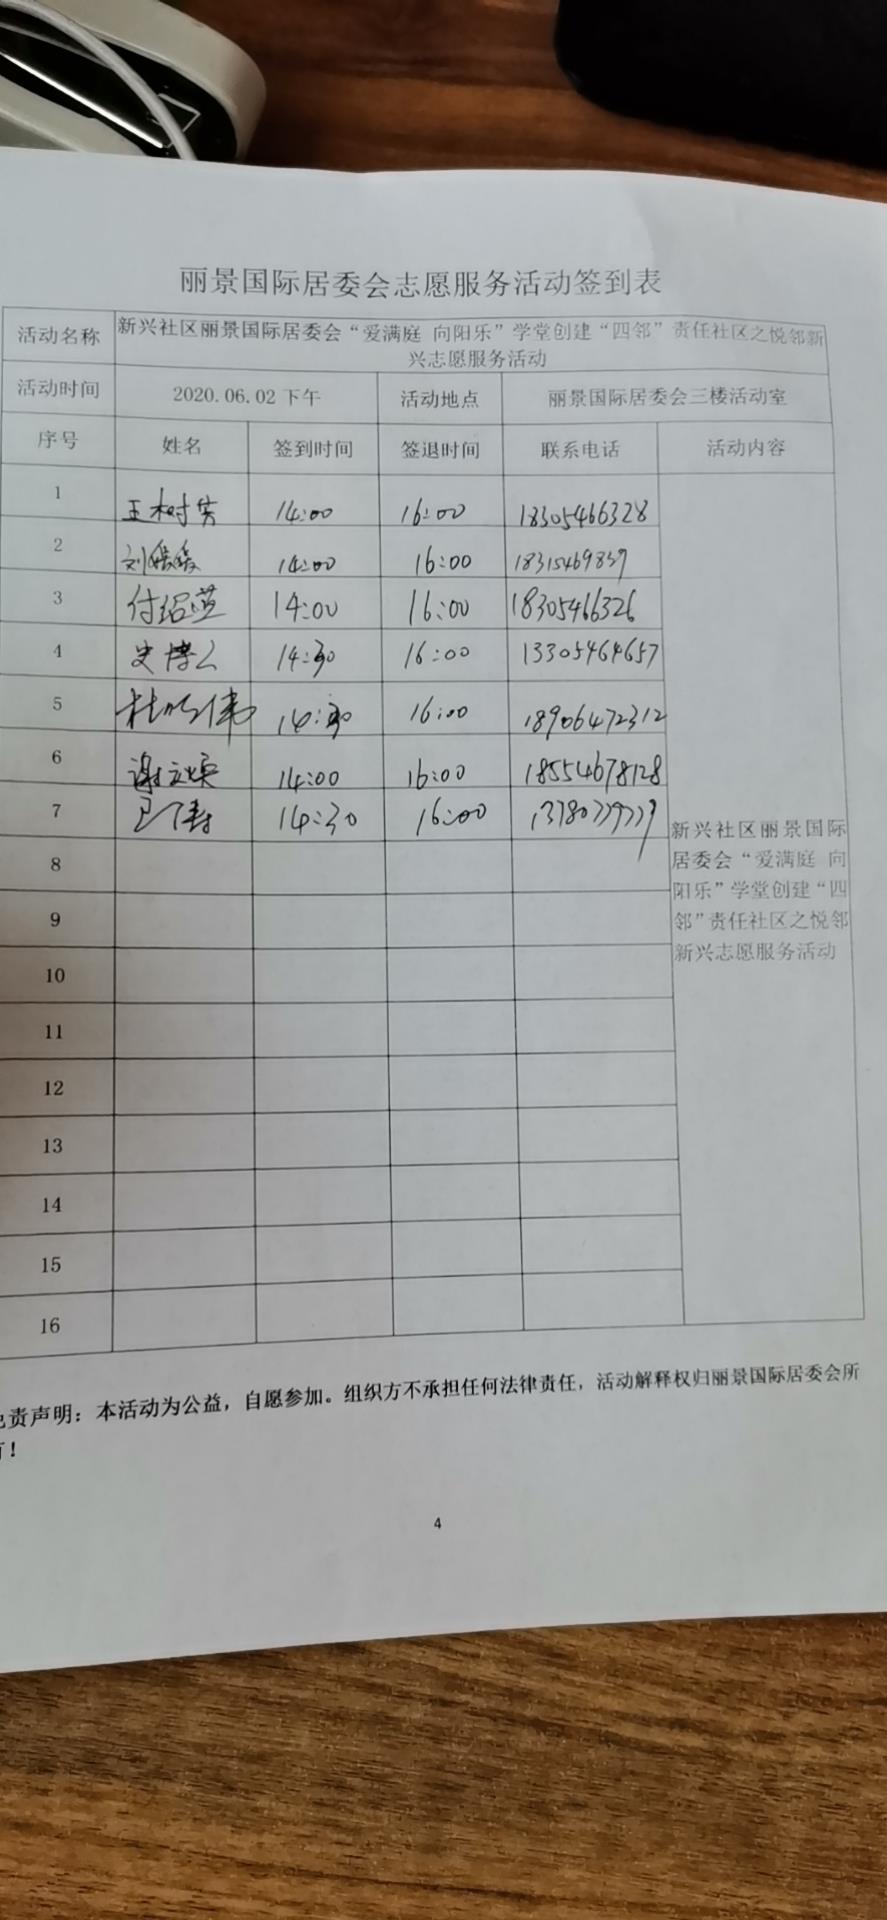 丽景国际居委会志愿服务活动签到表
活动名称 新兴社区丽景国际居委会“爱满庭 向阳乐”学堂创建“四邻”责任社区之悦邻新
兴志愿服务活动
活动时间 2020.06.02下午 活动地点 丽景国际居委会三楼活动室
序号 姓名 签到时间 签退时间 联系电话 活动内容
1 王树芳 14:00 16:00 18305466328
2 刘媛媛 14:00 16:00 18315469839
3 付绍莲 14:00 16:00 18305466326
4 史博 14:30 16:00 13305464657
5 杜 伟 14:30 16:00 18906472312
6 谢 14:00 16:00 18554678128
7 14:30 16:00
新兴社区丽景国际
居委会“爱满庭 向
阳乐”学堂创建“四
邻”责任社区之悦邻
新兴志愿服务活动
8
9
10
11
12
13
14
15
16
责声明：本活动为公益，自愿参加。组织方不承担任何法律责任，活动解释权归丽景国际居委会所
！
4